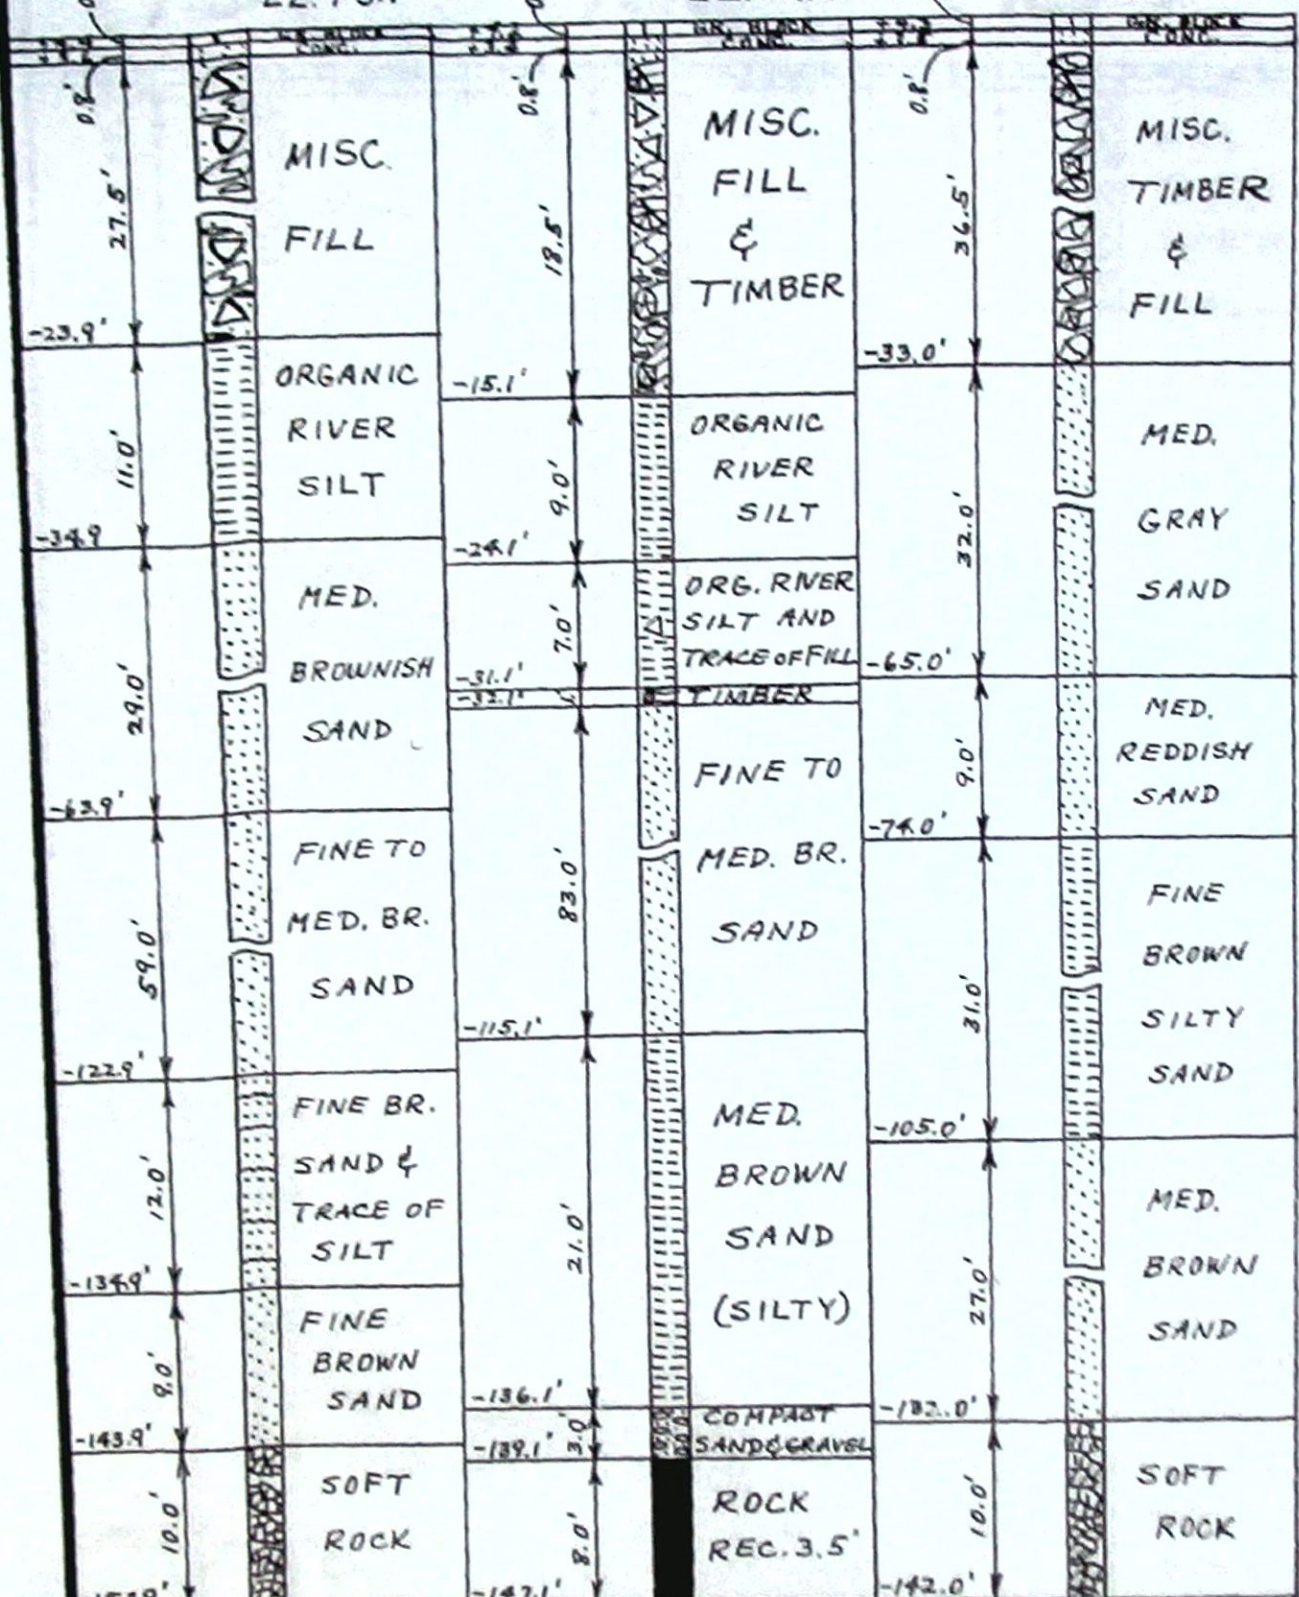 GR. BLOCK
CONC.
0.8'
27.5'
MISC.
FILL
-23.9'
11.0'
ORGANIC
RIVER
SILT
-34.9
29.0'
MED.
BROWNISH
SAND
-63.9'
59.0'
FINE TO
MED. BR.
SAND
-122.9'
12.0'
FINE BR.
SAND &
TRACE OF
SILT
-134.9'
9.0'
FINE
BROWN
SAND
-143.9'
10.0'
SOFT
ROCK
GR. BLOCK
CONC.
0.8'
18.5'
MISC.
FILL
&
TIMBER
-15.1'
9.0'
ORGANIC
RIVER
SILT
-24.1'
7.0'
ORG. RIVER
SILT AND
TRACE OF FILL
-31.1'
-32.1'
TIMBER
83.0'
FINE TO
MED. BR.
SAND
-115.1'
21.0'
MED.
BROWN
SAND
(SILTY)
-136.1'
3.0'
COMPACT
SAND & GRAVEL
-139.1'
8.0'
ROCK
REC. 3.5'
-147.1'
GR. BLOCK
CONC.
0.8'
36.5'
MISC.
TIMBER
&
FILL
-33.0'
32.0'
MED.
GRAY
SAND
-65.0'
9.0'
MED.
REDDISH
SAND
-74.0'
31.0'
FINE
BROWN
SILTY
SAND
-105.0'
27.0'
MED.
BROWN
SAND
-132.0'
10.0'
SOFT
ROCK
-142.0'